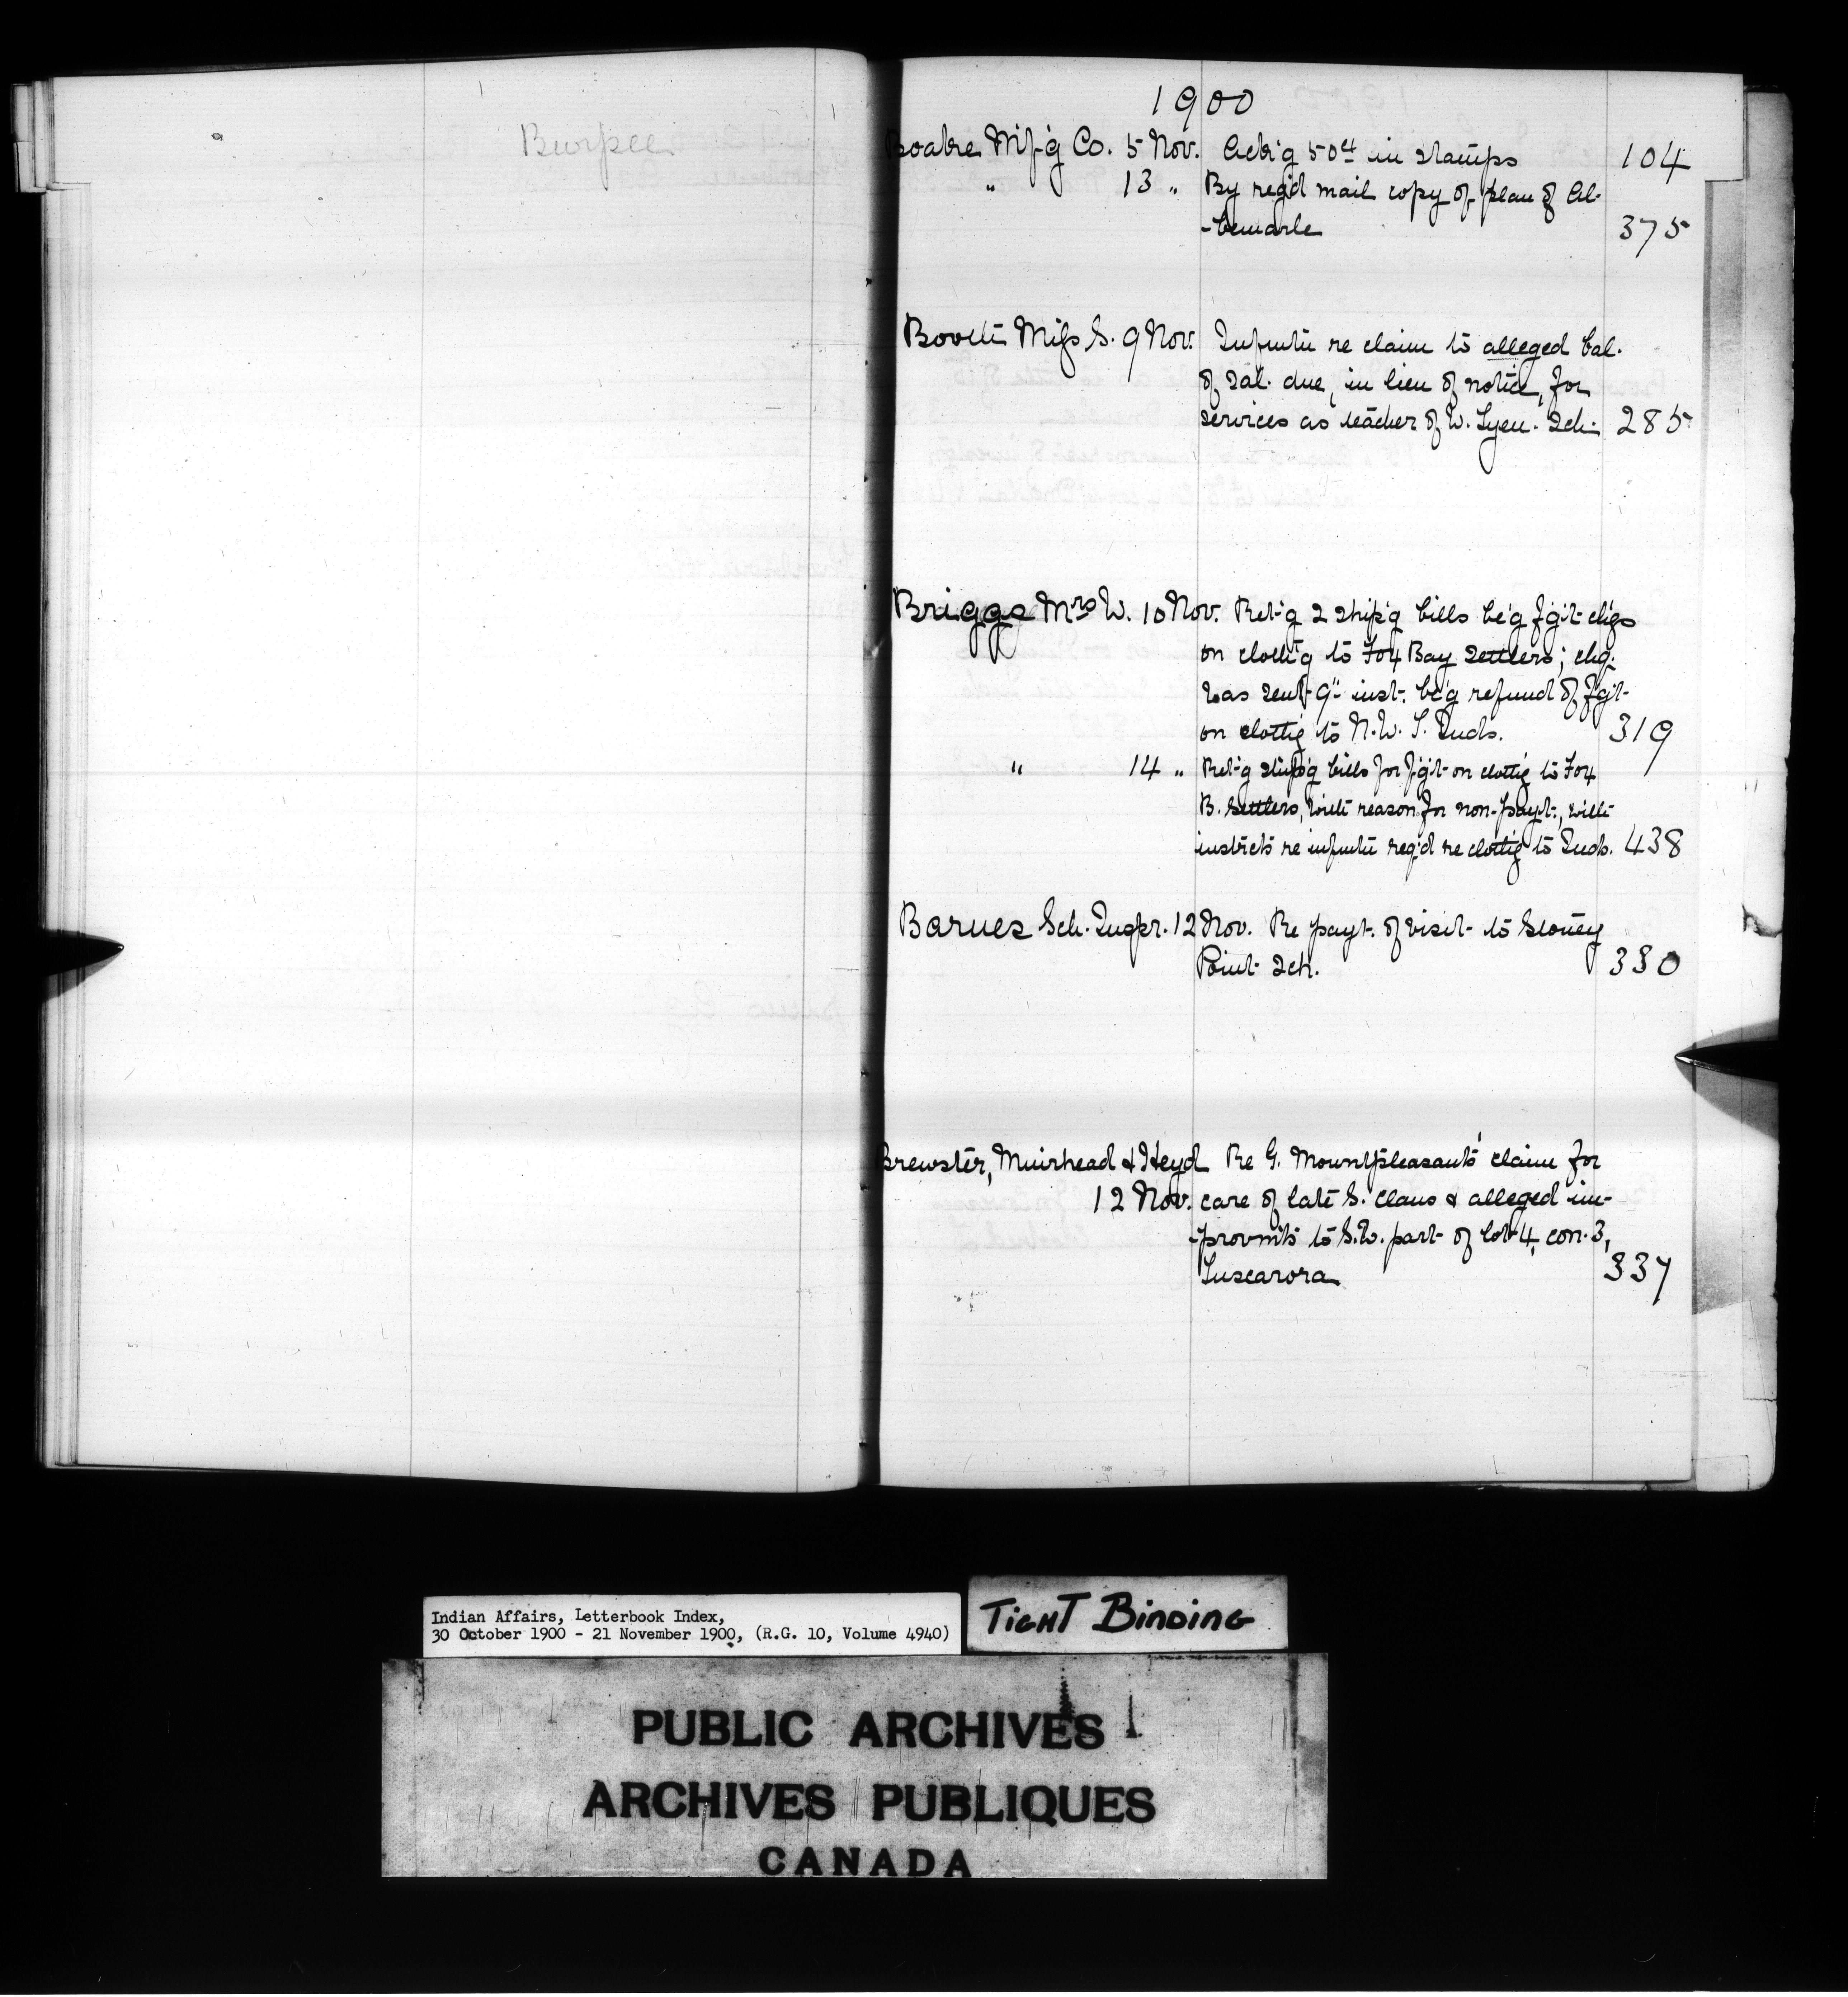 Burpee
1900
Boake Mf'g Co. 5 Nov. Ack'g 50ct in stamps 104
" 13 " By reg'd mail copy of plan of Al-
-bemarle 375
Miss S. 9 Nov. Infmtn re claim to alleged bal.
of sal. due, in lieu of notice, for
services as teacher of W. Tyen. Sch. 285
Briggs Mrs W. 10 Nov. Ret'g 2 ship'g bills be'g f'g't ch'gs
on cloth'g to Fox Bay settlers; chq.
was sent 9" inst. be'g refund of f'g't
on clothg to N.W.T. Inds. 319
" 14 " Ret'g ship'g bills for f'g't on clothg to Fox
B. settlers, with reason for non-payt., with
instrcts re infmtn req'd re clothg to Inds. 438
Barnes Sch. Inspr. 12 Nov. Re payt. of visit to Stoney
Point Sch. 330
Brewster, Muirhead & Heyd Re G. Mountpleasant's claim for
12 Nov. care of late S. Claus & alleged im-
-provmts to S.W. part of lot 4, con. 3,
Tuscarora 337
Indian Affairs, Letterbook Index,
30 October 1900 - 21 November 1900, (R.G. 10, Volume 4940)
TIGHT BINDING
PUBLIC ARCHIVES
ARCHIVES PUBLIQUES
CANADA